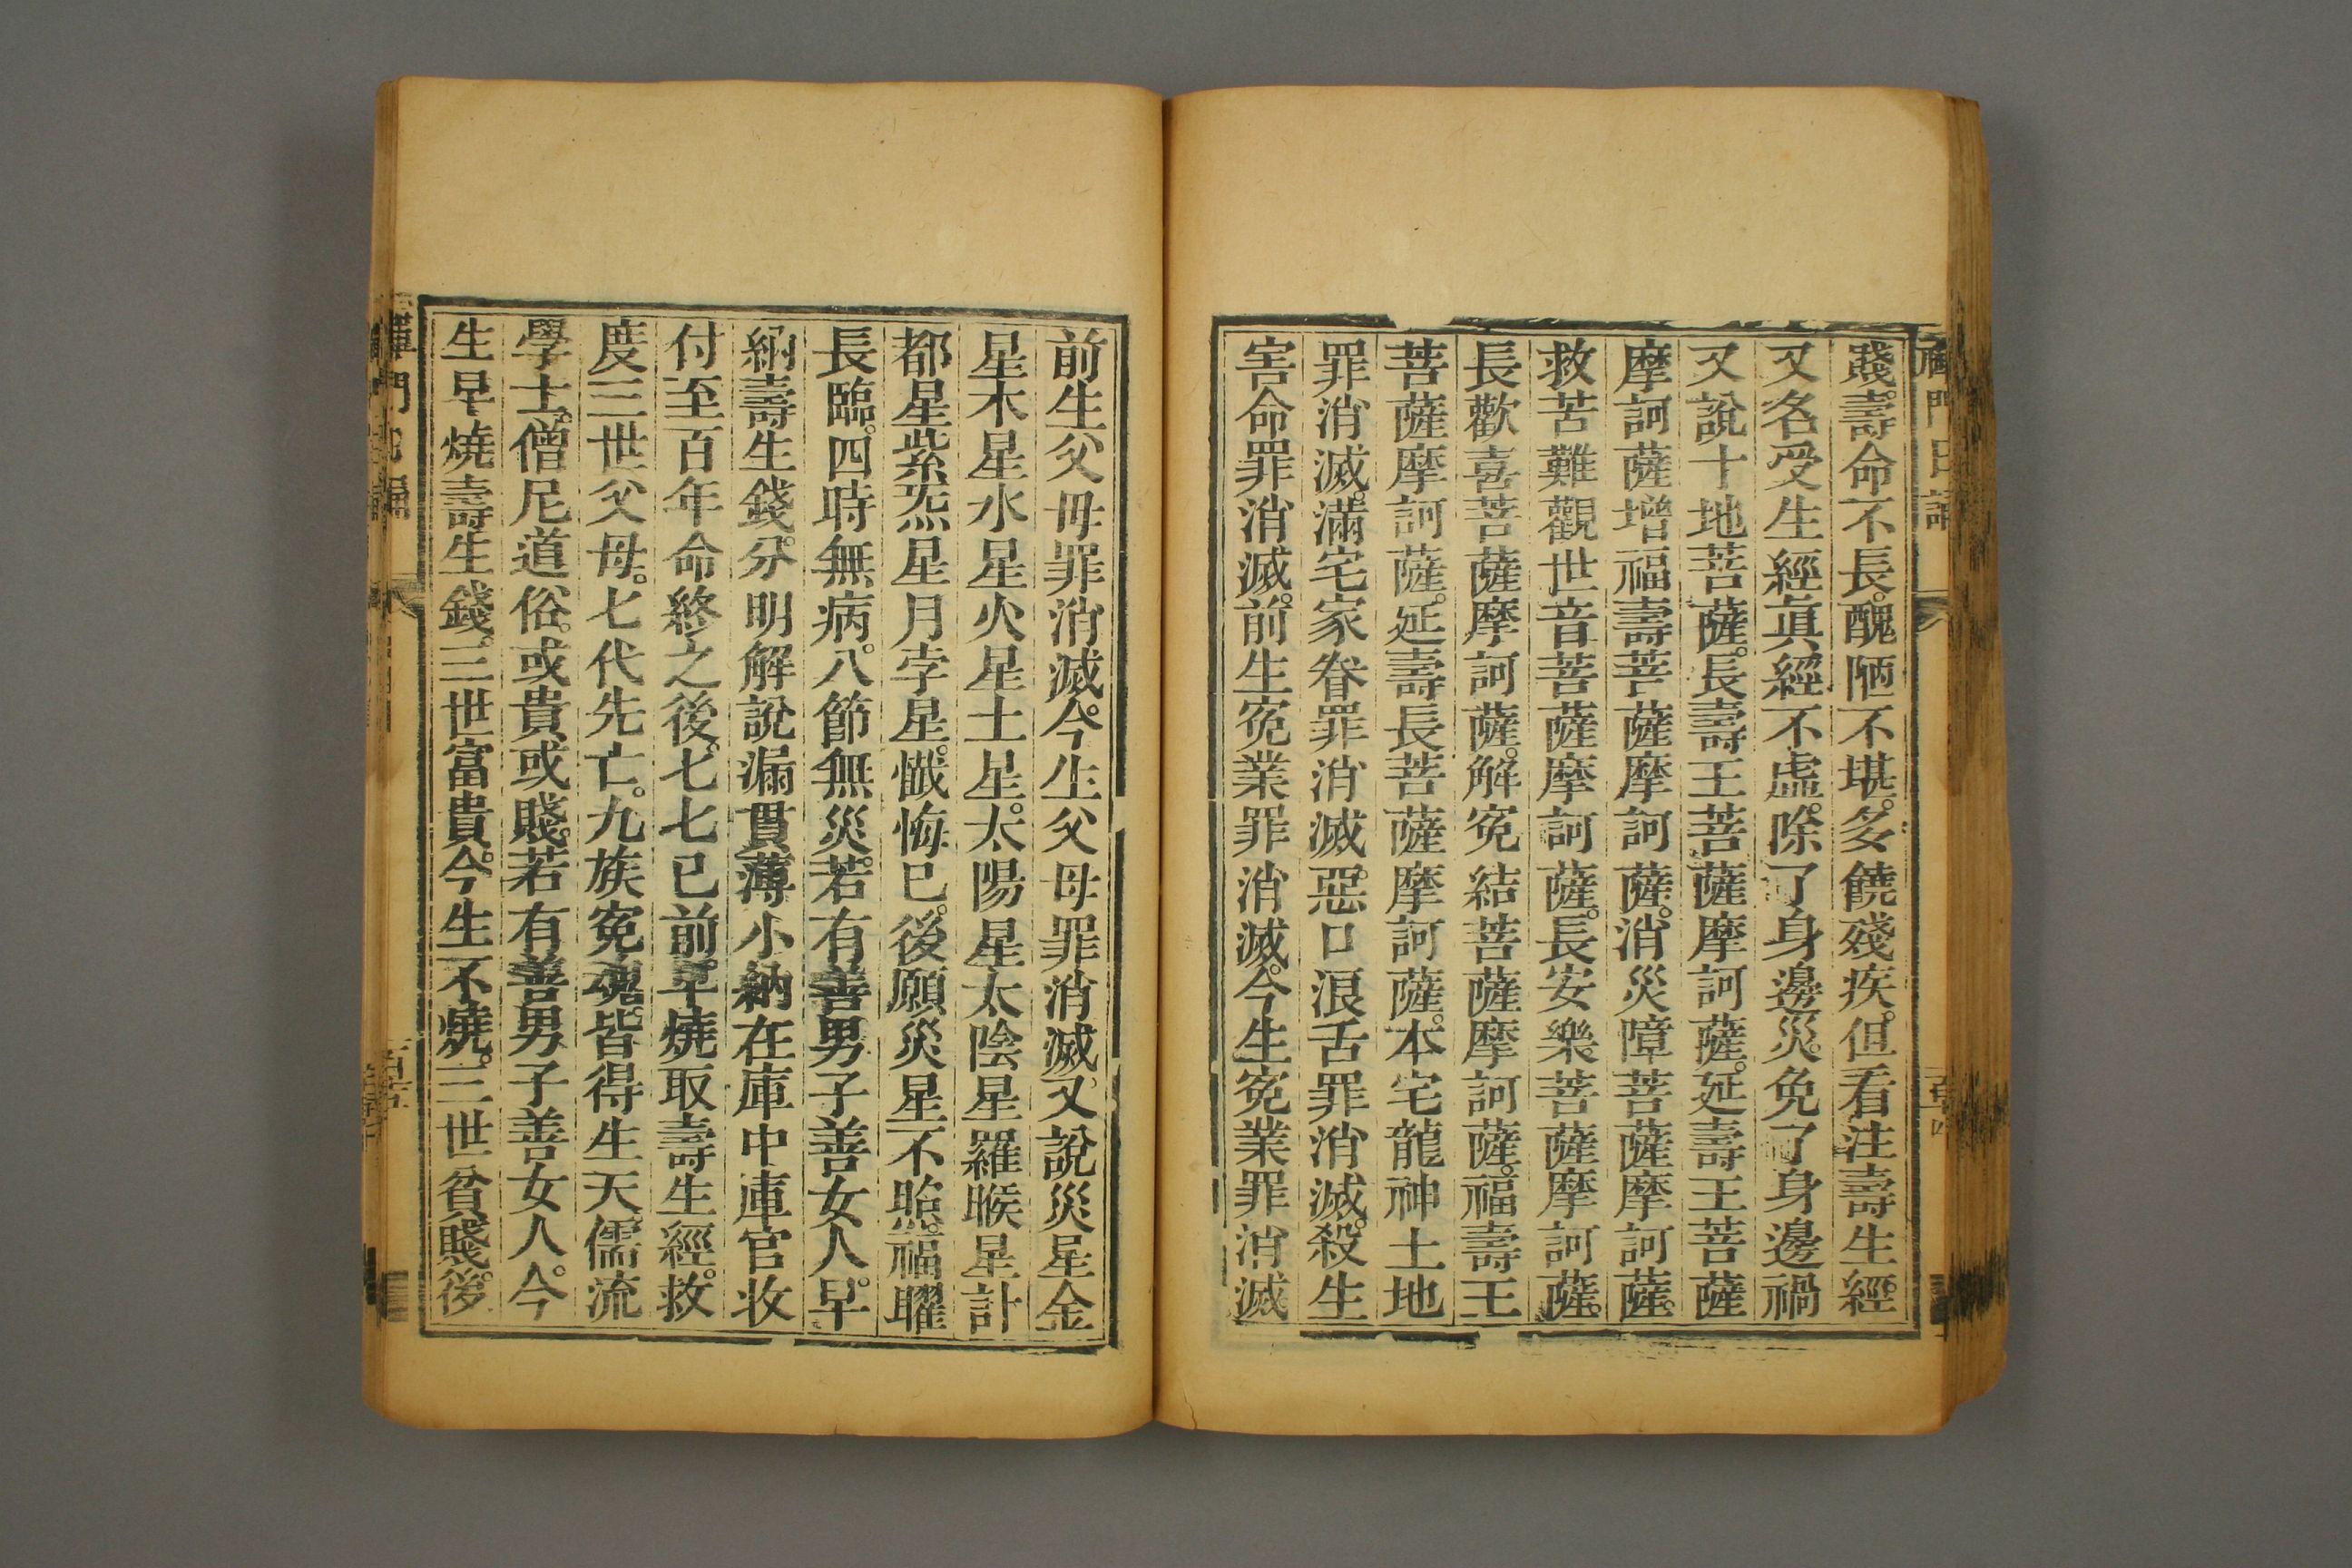 賤。壽命不長。醜陋不堪。多饒殘疾。但看注壽生經
又名受生經眞經不虛。除了身邊災。免了身邊禍
又說十地菩薩。長壽王菩薩摩訶薩。延壽王菩薩
摩訶薩增福壽菩薩摩訶薩。消災障菩薩摩訶薩。
救苦難觀世音菩薩摩訶薩。長安樂菩薩摩訶薩。
長歡喜菩薩摩訶薩。解寃結菩薩摩訶薩。福壽王
菩薩摩訶薩。延壽長菩薩摩訶薩。本宅龍神土地
罪消滅。滿宅家眷罪消滅。惡口浪舌罪消滅。殺生
害命罪消滅。前生寃業罪消滅。今生寃業罪消滅
前生父母罪消滅。今生父母罪消滅又說災星金
星木星水星火星土星。太陽星太陰星羅睺星計
都星紫炁星月孛星。懺悔已。後願災星不照。福曜
長臨。四時無病。八節無災。若有善男子善女人。早
納壽生錢。分明解說漏貫薄小納在庫中庫官收
付至百年命終之後。七七已前。早燒取壽生經。救
度三世父母。七代先亡。九族寃魂。皆得生天儒流
學士。僧尼道俗。或貴或賤。若有善男子善女人。今
生早燒壽生錢。三世富貴。今生不燒。三世貧賤。後